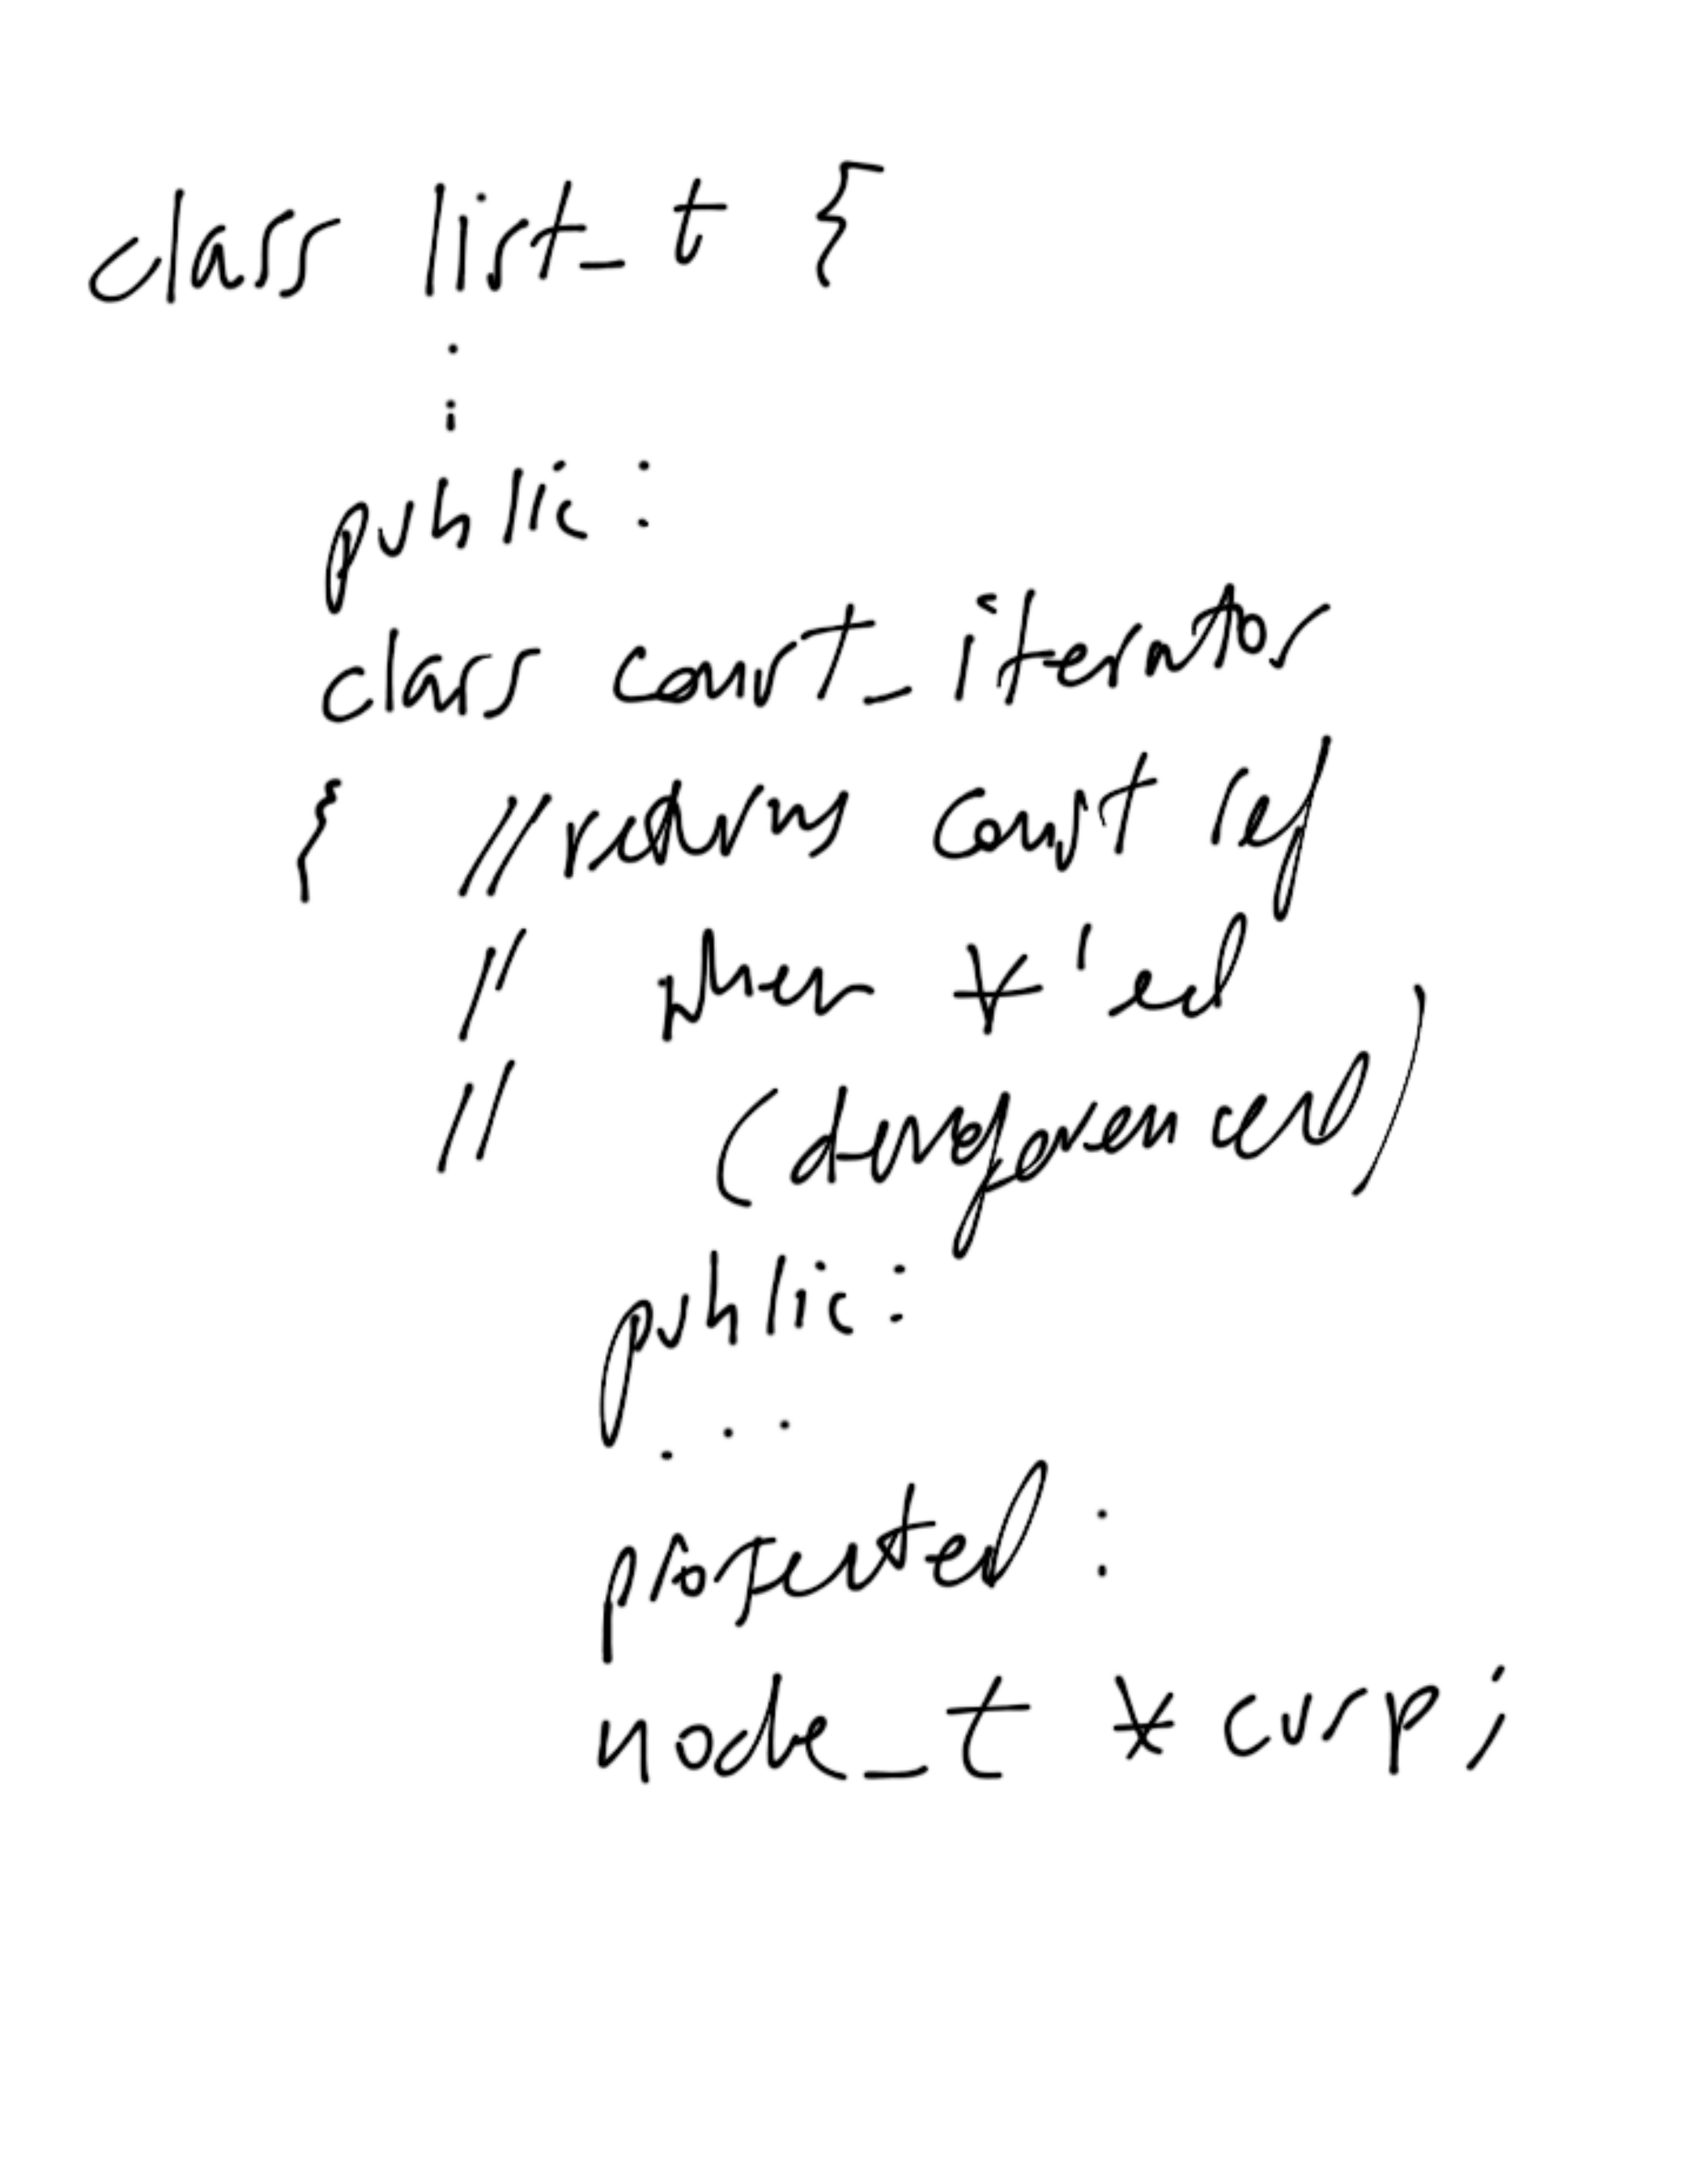 class list_t {
:
public:
class const_iterator
{ //returns const ref
// when *'ed
// (dereferenced)
public:
...
protected:
node_t *curp;